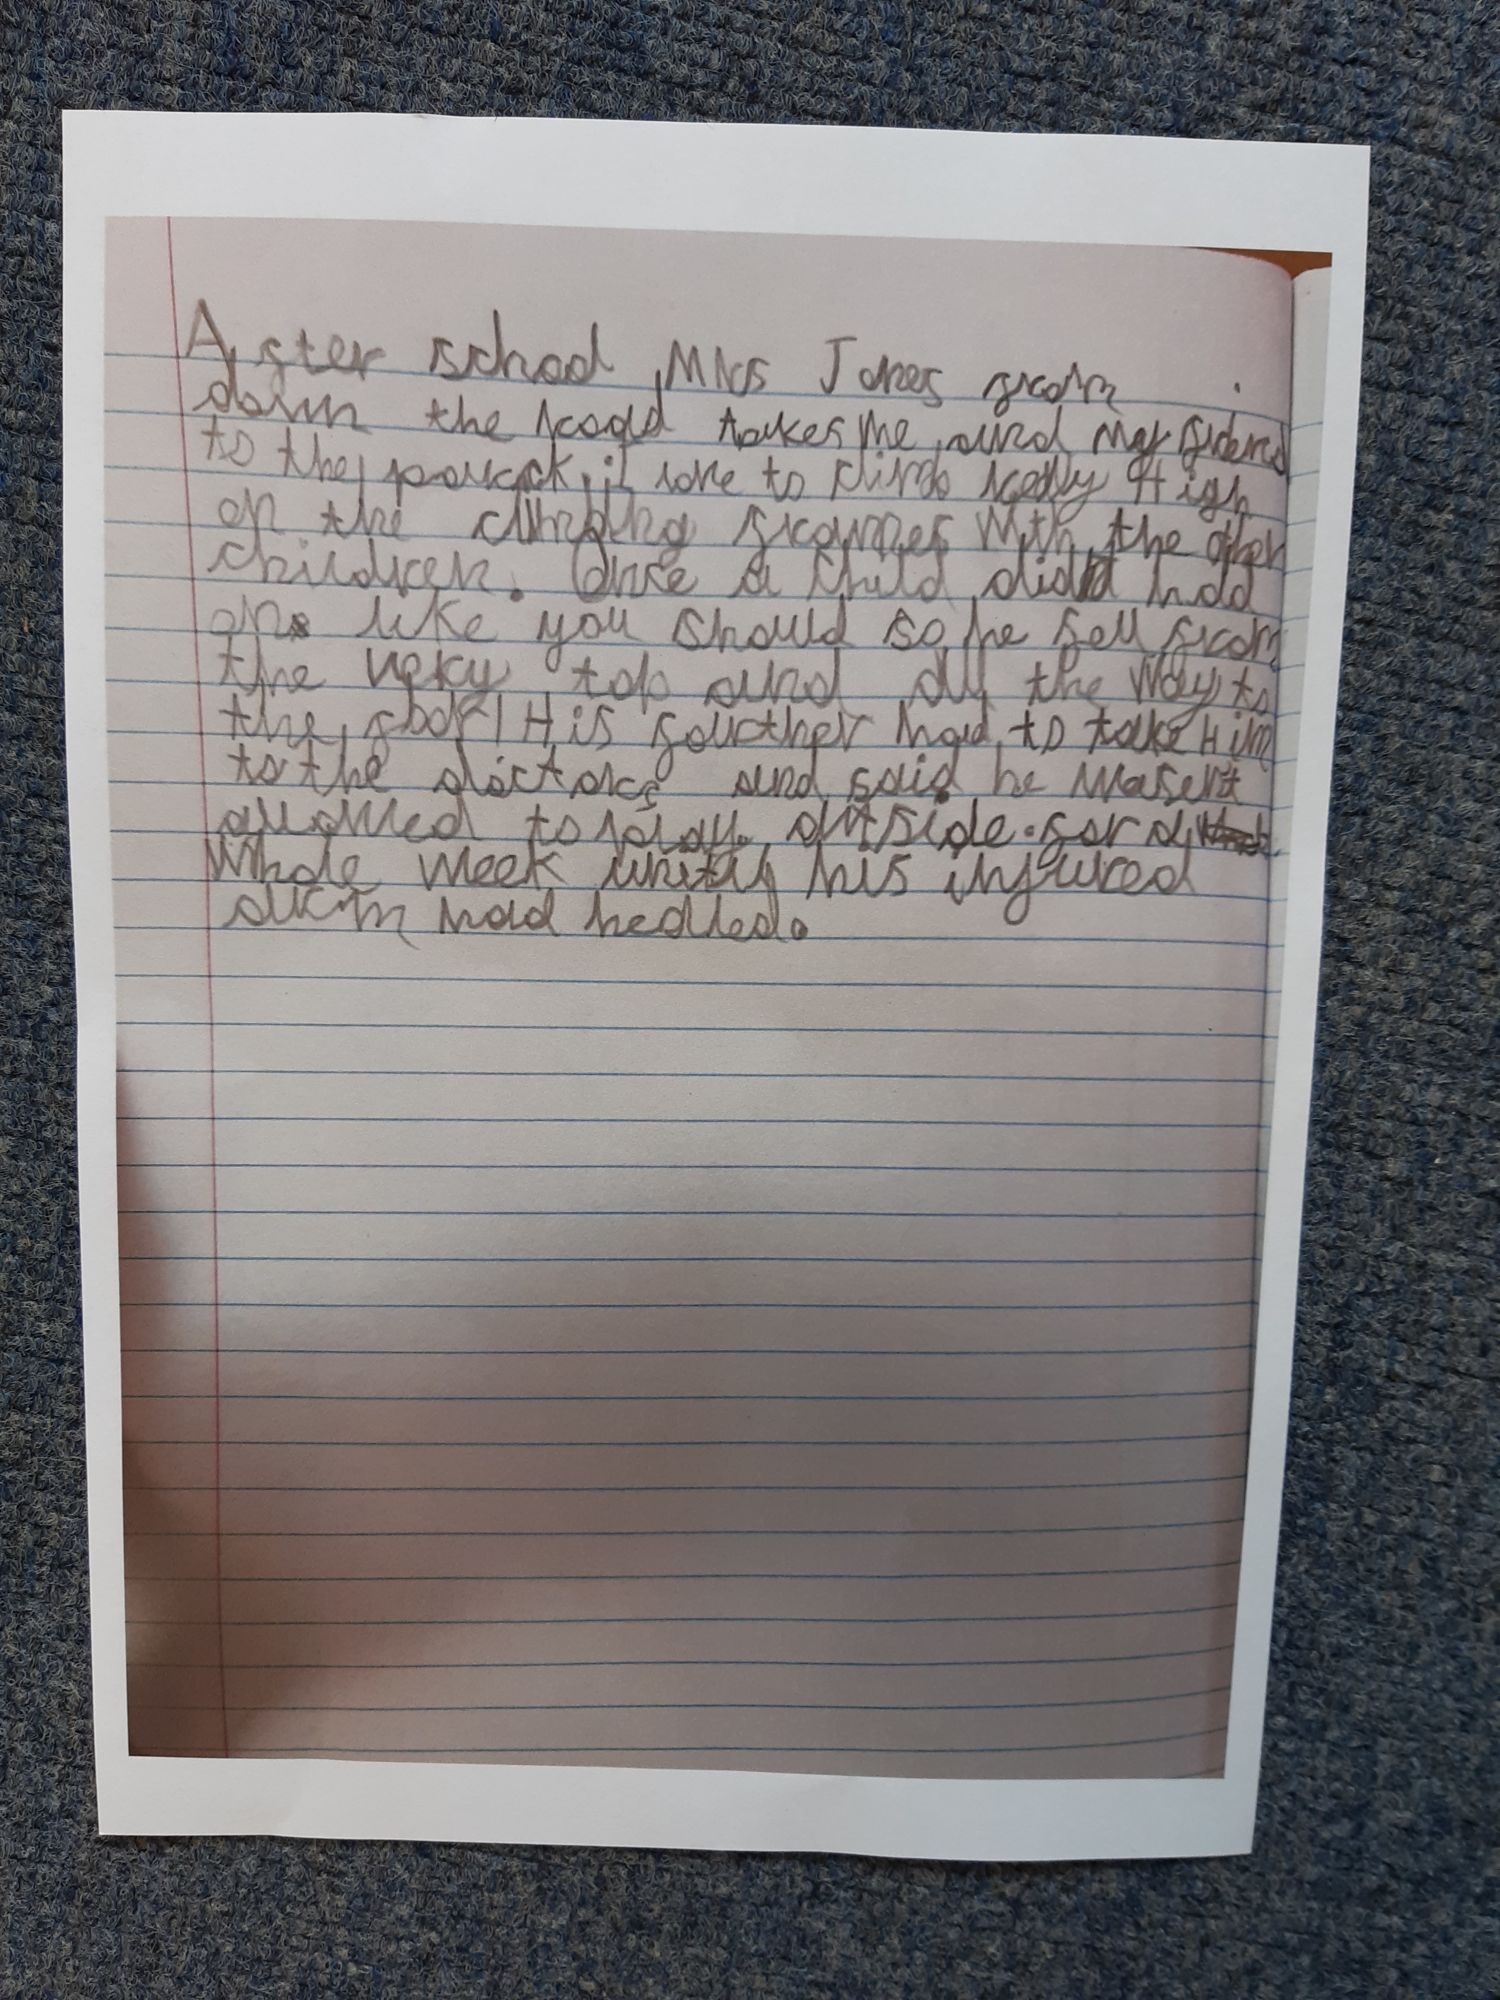 After school, Mrs Jones from
down the road takes me and my friend
to the park, i love to climb really High
on the climbing frames with the other
children. Once a child didnt hold
on like you should so he fell from
the very top and all the way to
the floor! His farther had to take Him
to the doctors and said he wasent
allowed to play outside for a
whole week until his injured
arm had healed.